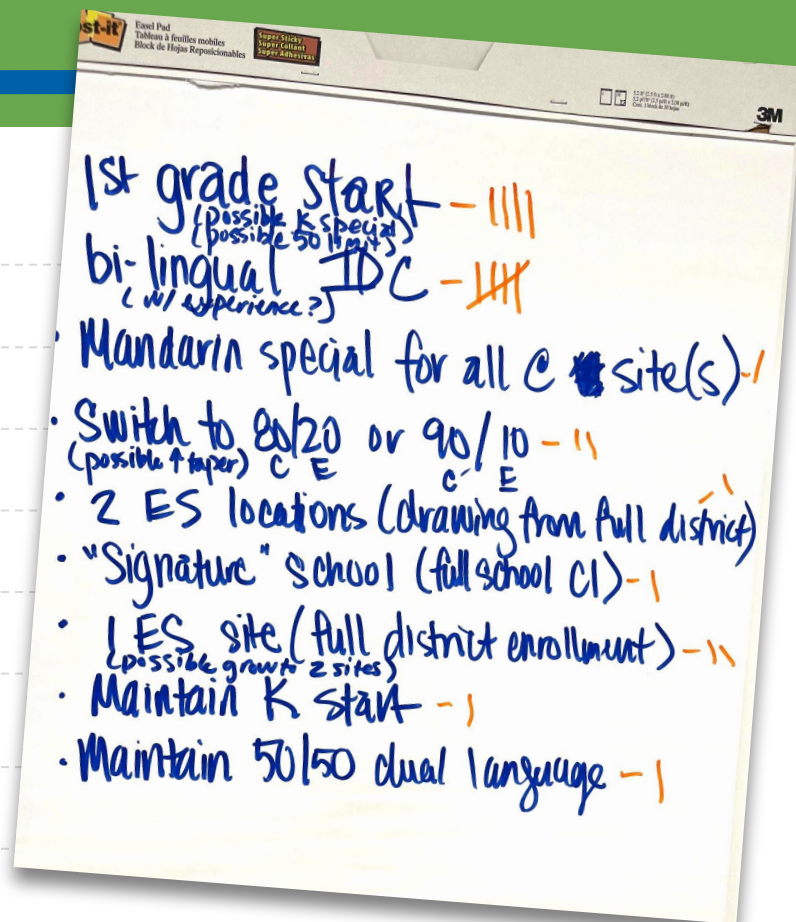 st-it
Easel Pad
Tableau à feuilles mobiles
Block de Hojas Reposicionables
Super Sticky
Super Collant
Super Adhesivas
3M
1st grade start - ||||
(possible K special)
(possible 50 limit)
bi-lingual IDC - 卌
(w/ experience?)
· Mandarin special for all @ site(s) - |
· Switch to 80/20 or 90/10 - ||
(possible ↑ taper) C E C E
· 2 ES locations (drawing from full district) - |
· "Signature" school (full school CI) - |
· 1 ES site (full district enrollment) - ||
(possible grow to 2 sites)
· Maintain K start - |
· Maintain 50/50 dual language - |